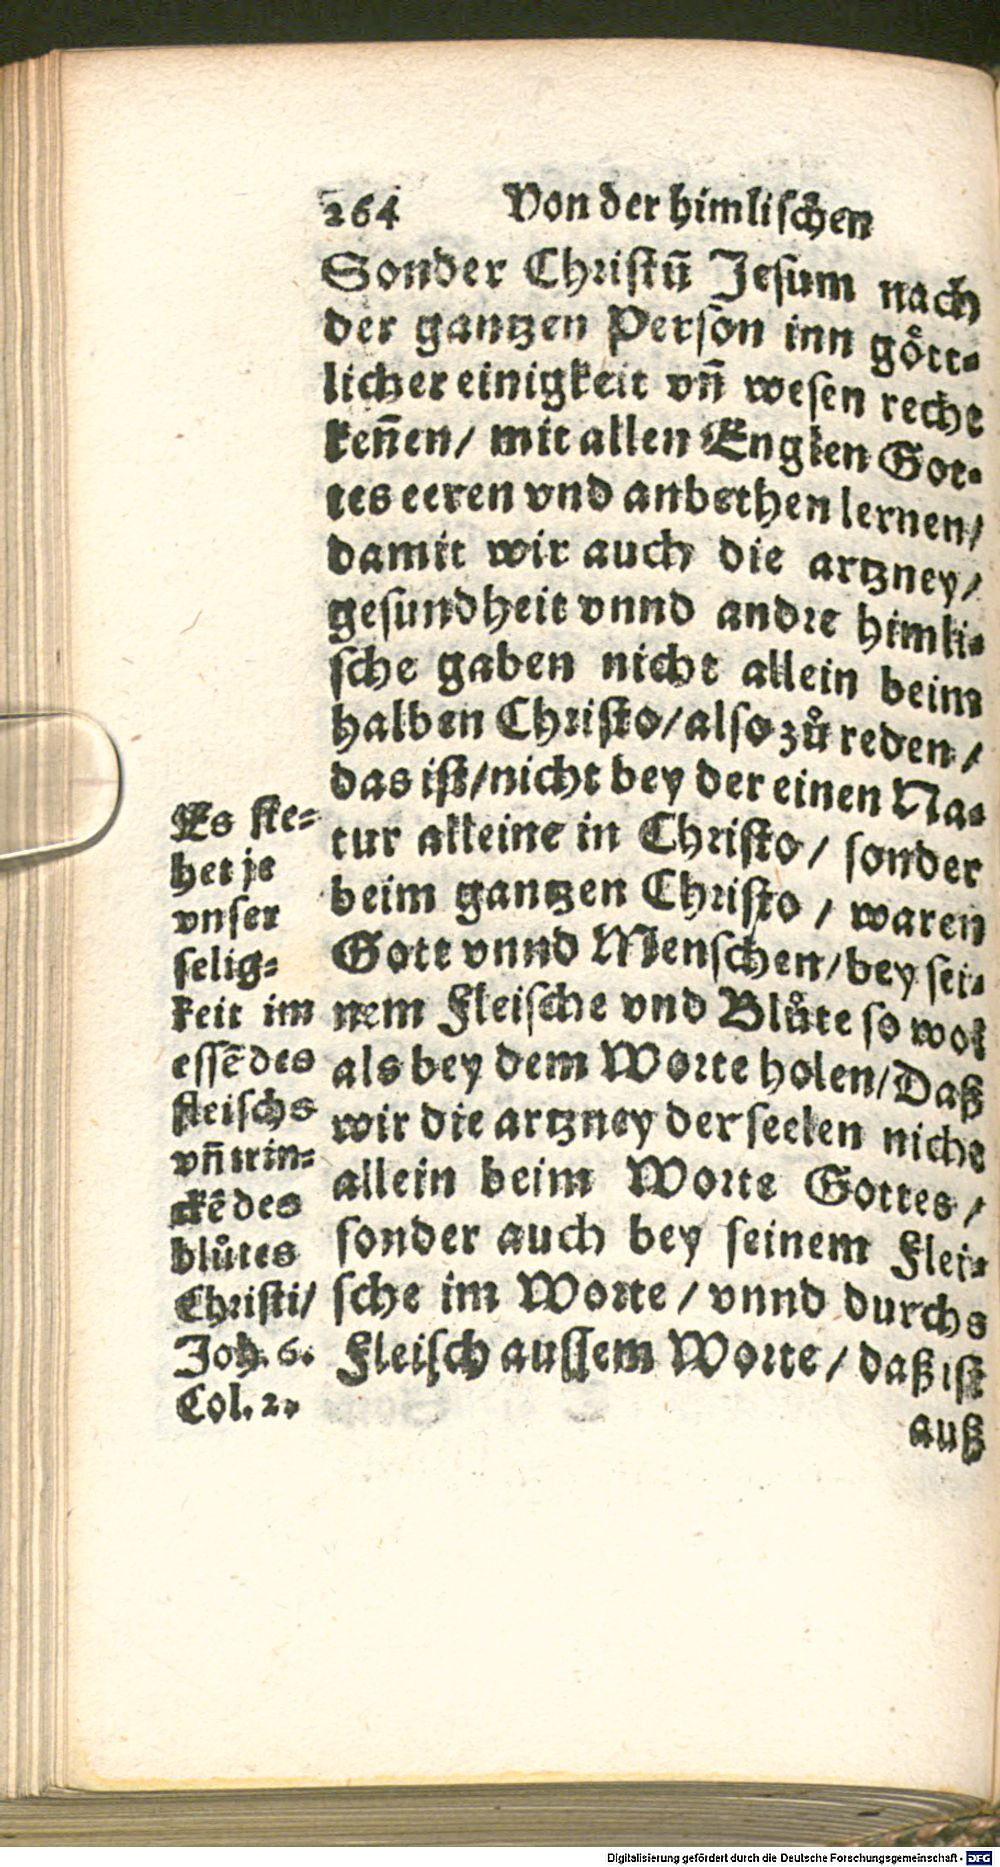 264 Von der himlischen
Sonder Christū Jesum nach
der gantzen Person inn goͤtt-
licher einigkeit vñ wesen recht
keñen/ mit allen Englen Got-
tes eeren vnd anbethen lernen/
damit wir auch die artzney/
gesundheit vnnd andre himli-
sche gaben nicht allein beim
halben Christo/also zů reden/
das ist/nicht bey der einen Na-
tur alleine in Christo/ sonder
beim gantzen Christo/ waren
Gott vnnd Menschen/bey sei-
nem Fleische vnd Blůte so wol
als bey dem Worte holen/Daß
wir die artzney der seelen nicht
allein beim Worte Gottes/
sonder auch bey seinem Flei-
sche im Worte/ vnnd durchs
Fleisch aussem Worte/ daß ist
auß
Es ste-
het je
vnser
selig-
keit im
essē des
fleischs
vñ trin-
ckē des
blůtes
Christi/
Joh. 6.
Col. 2.
Digitalisierung gefördert durch die Deutsche Forschungsgemeinschaft - DFG